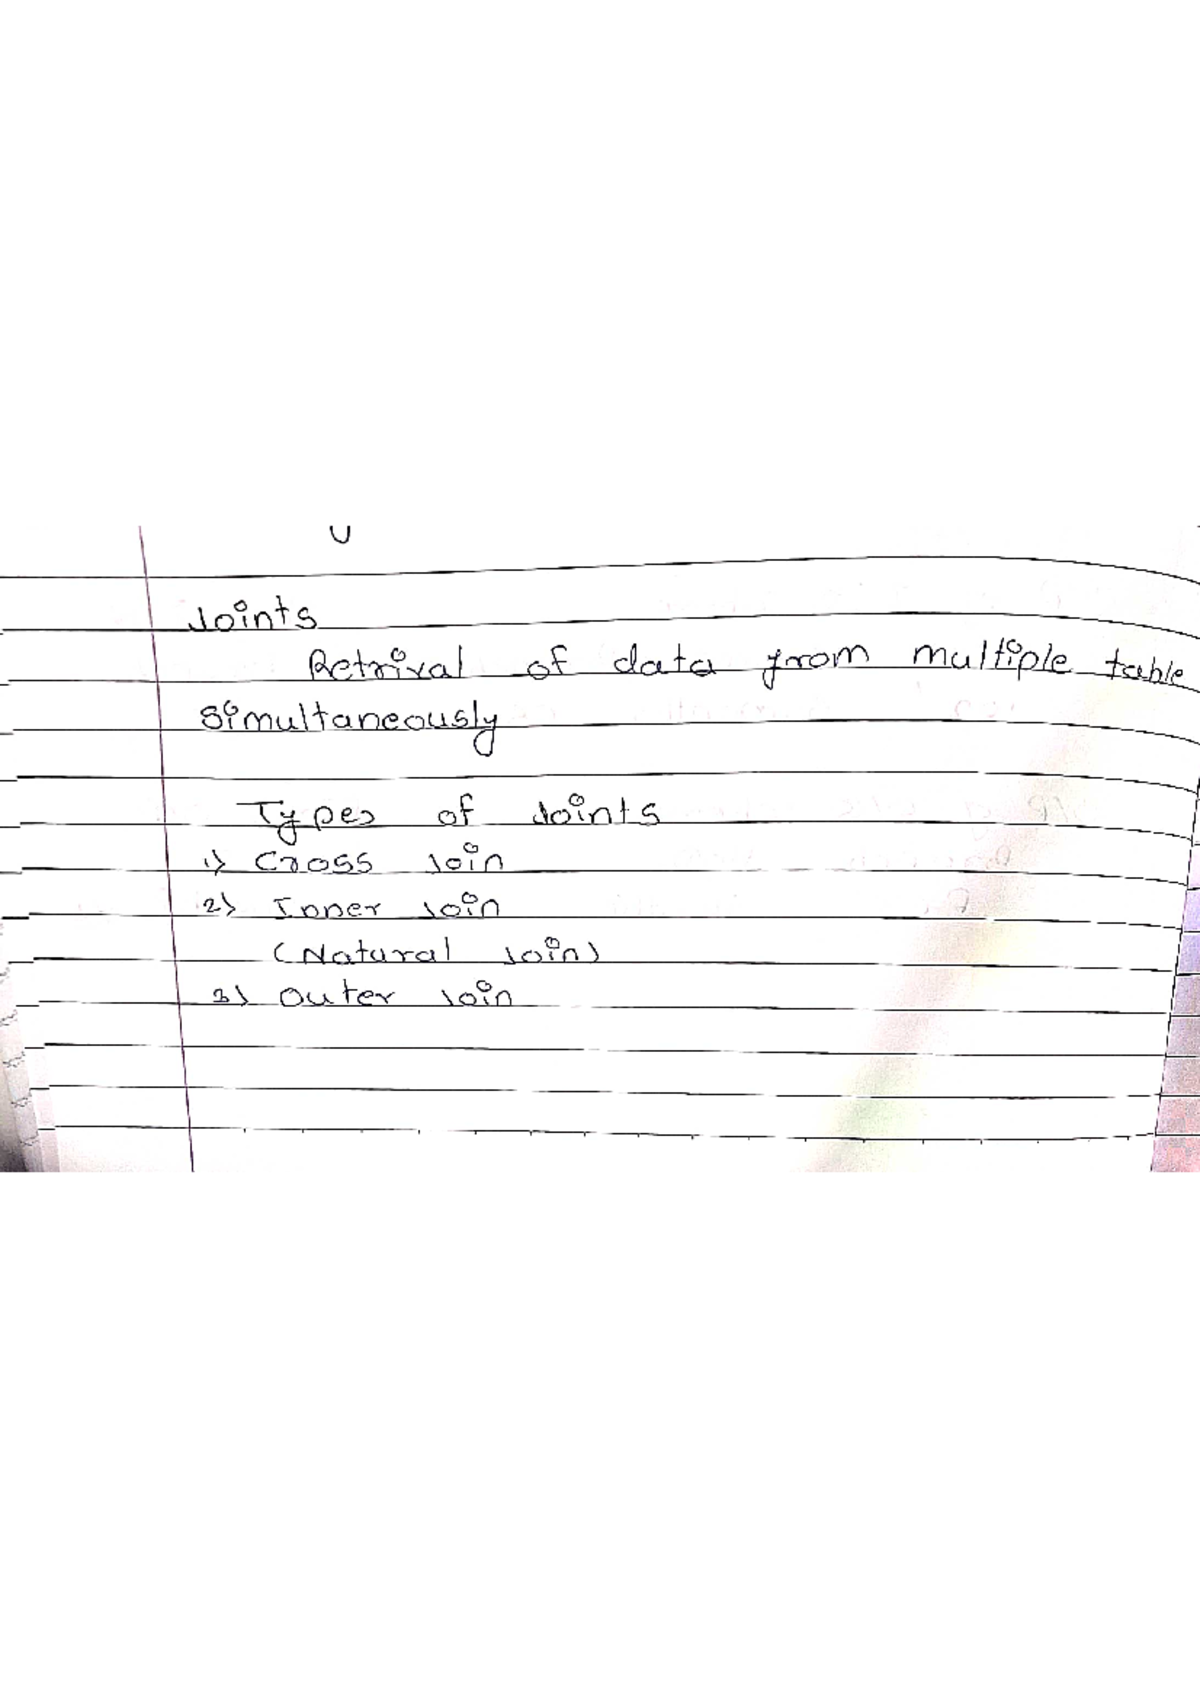 Joints
Retrival of data from multiple table
simultaneously
Types of Joints
1) Cross Join
2) Inner Join
(Natural Join)
3) Outer Join